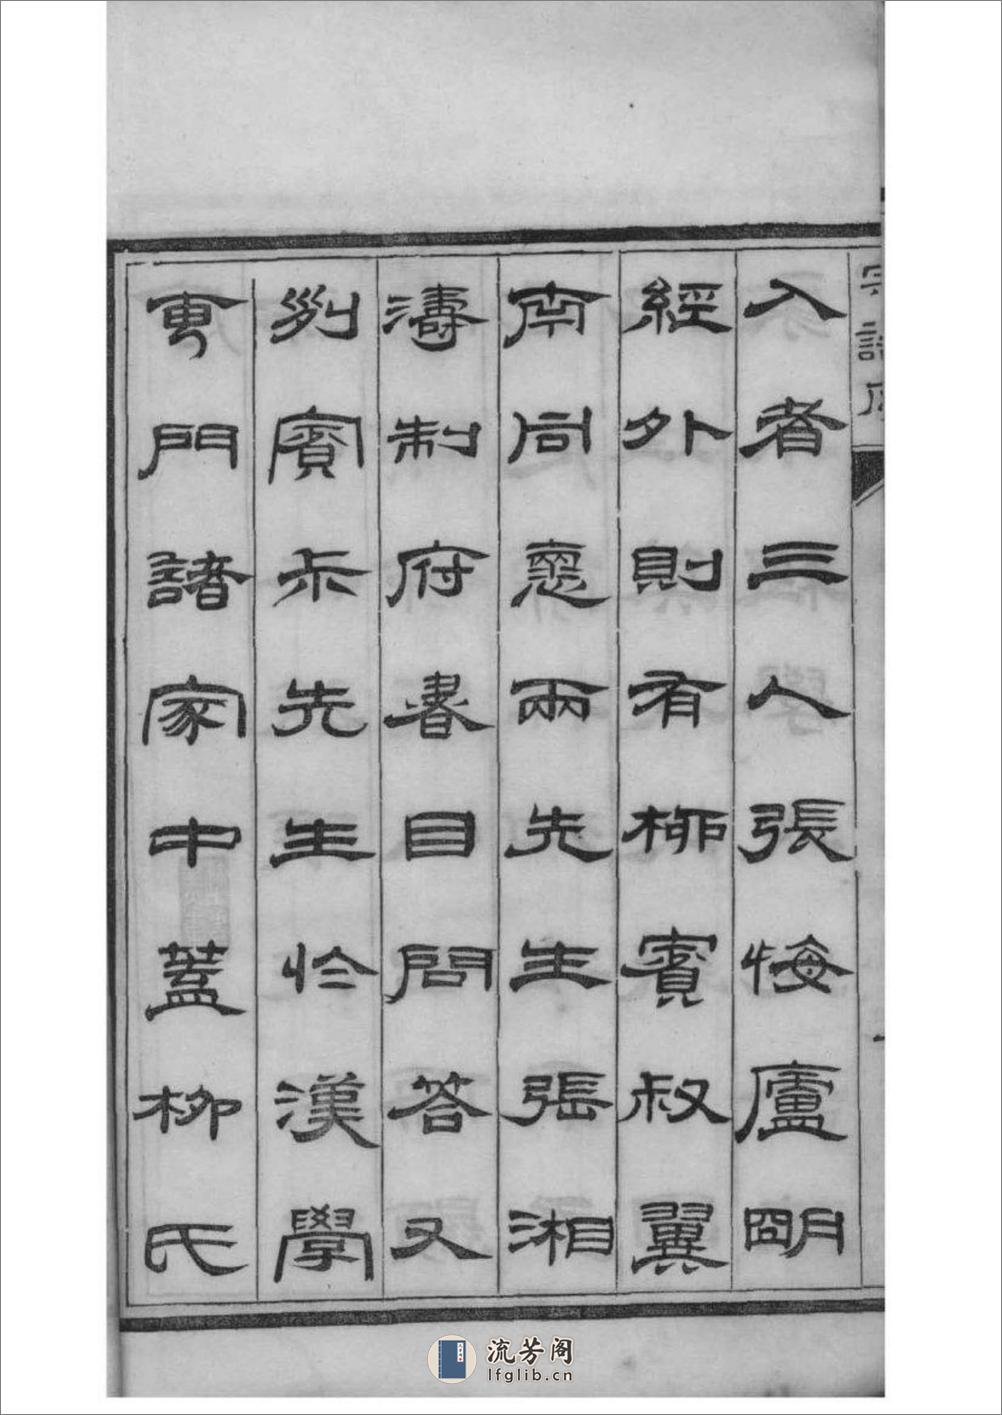 入者三人張悔廬明
經外則有柳賓叔翼
南同憲兩先生張湘
濤制府書目問答又
列賓叔先生於漢學
專門諸家中蓋柳氏
宗譜序
一
流芳阁
lfglib.cn